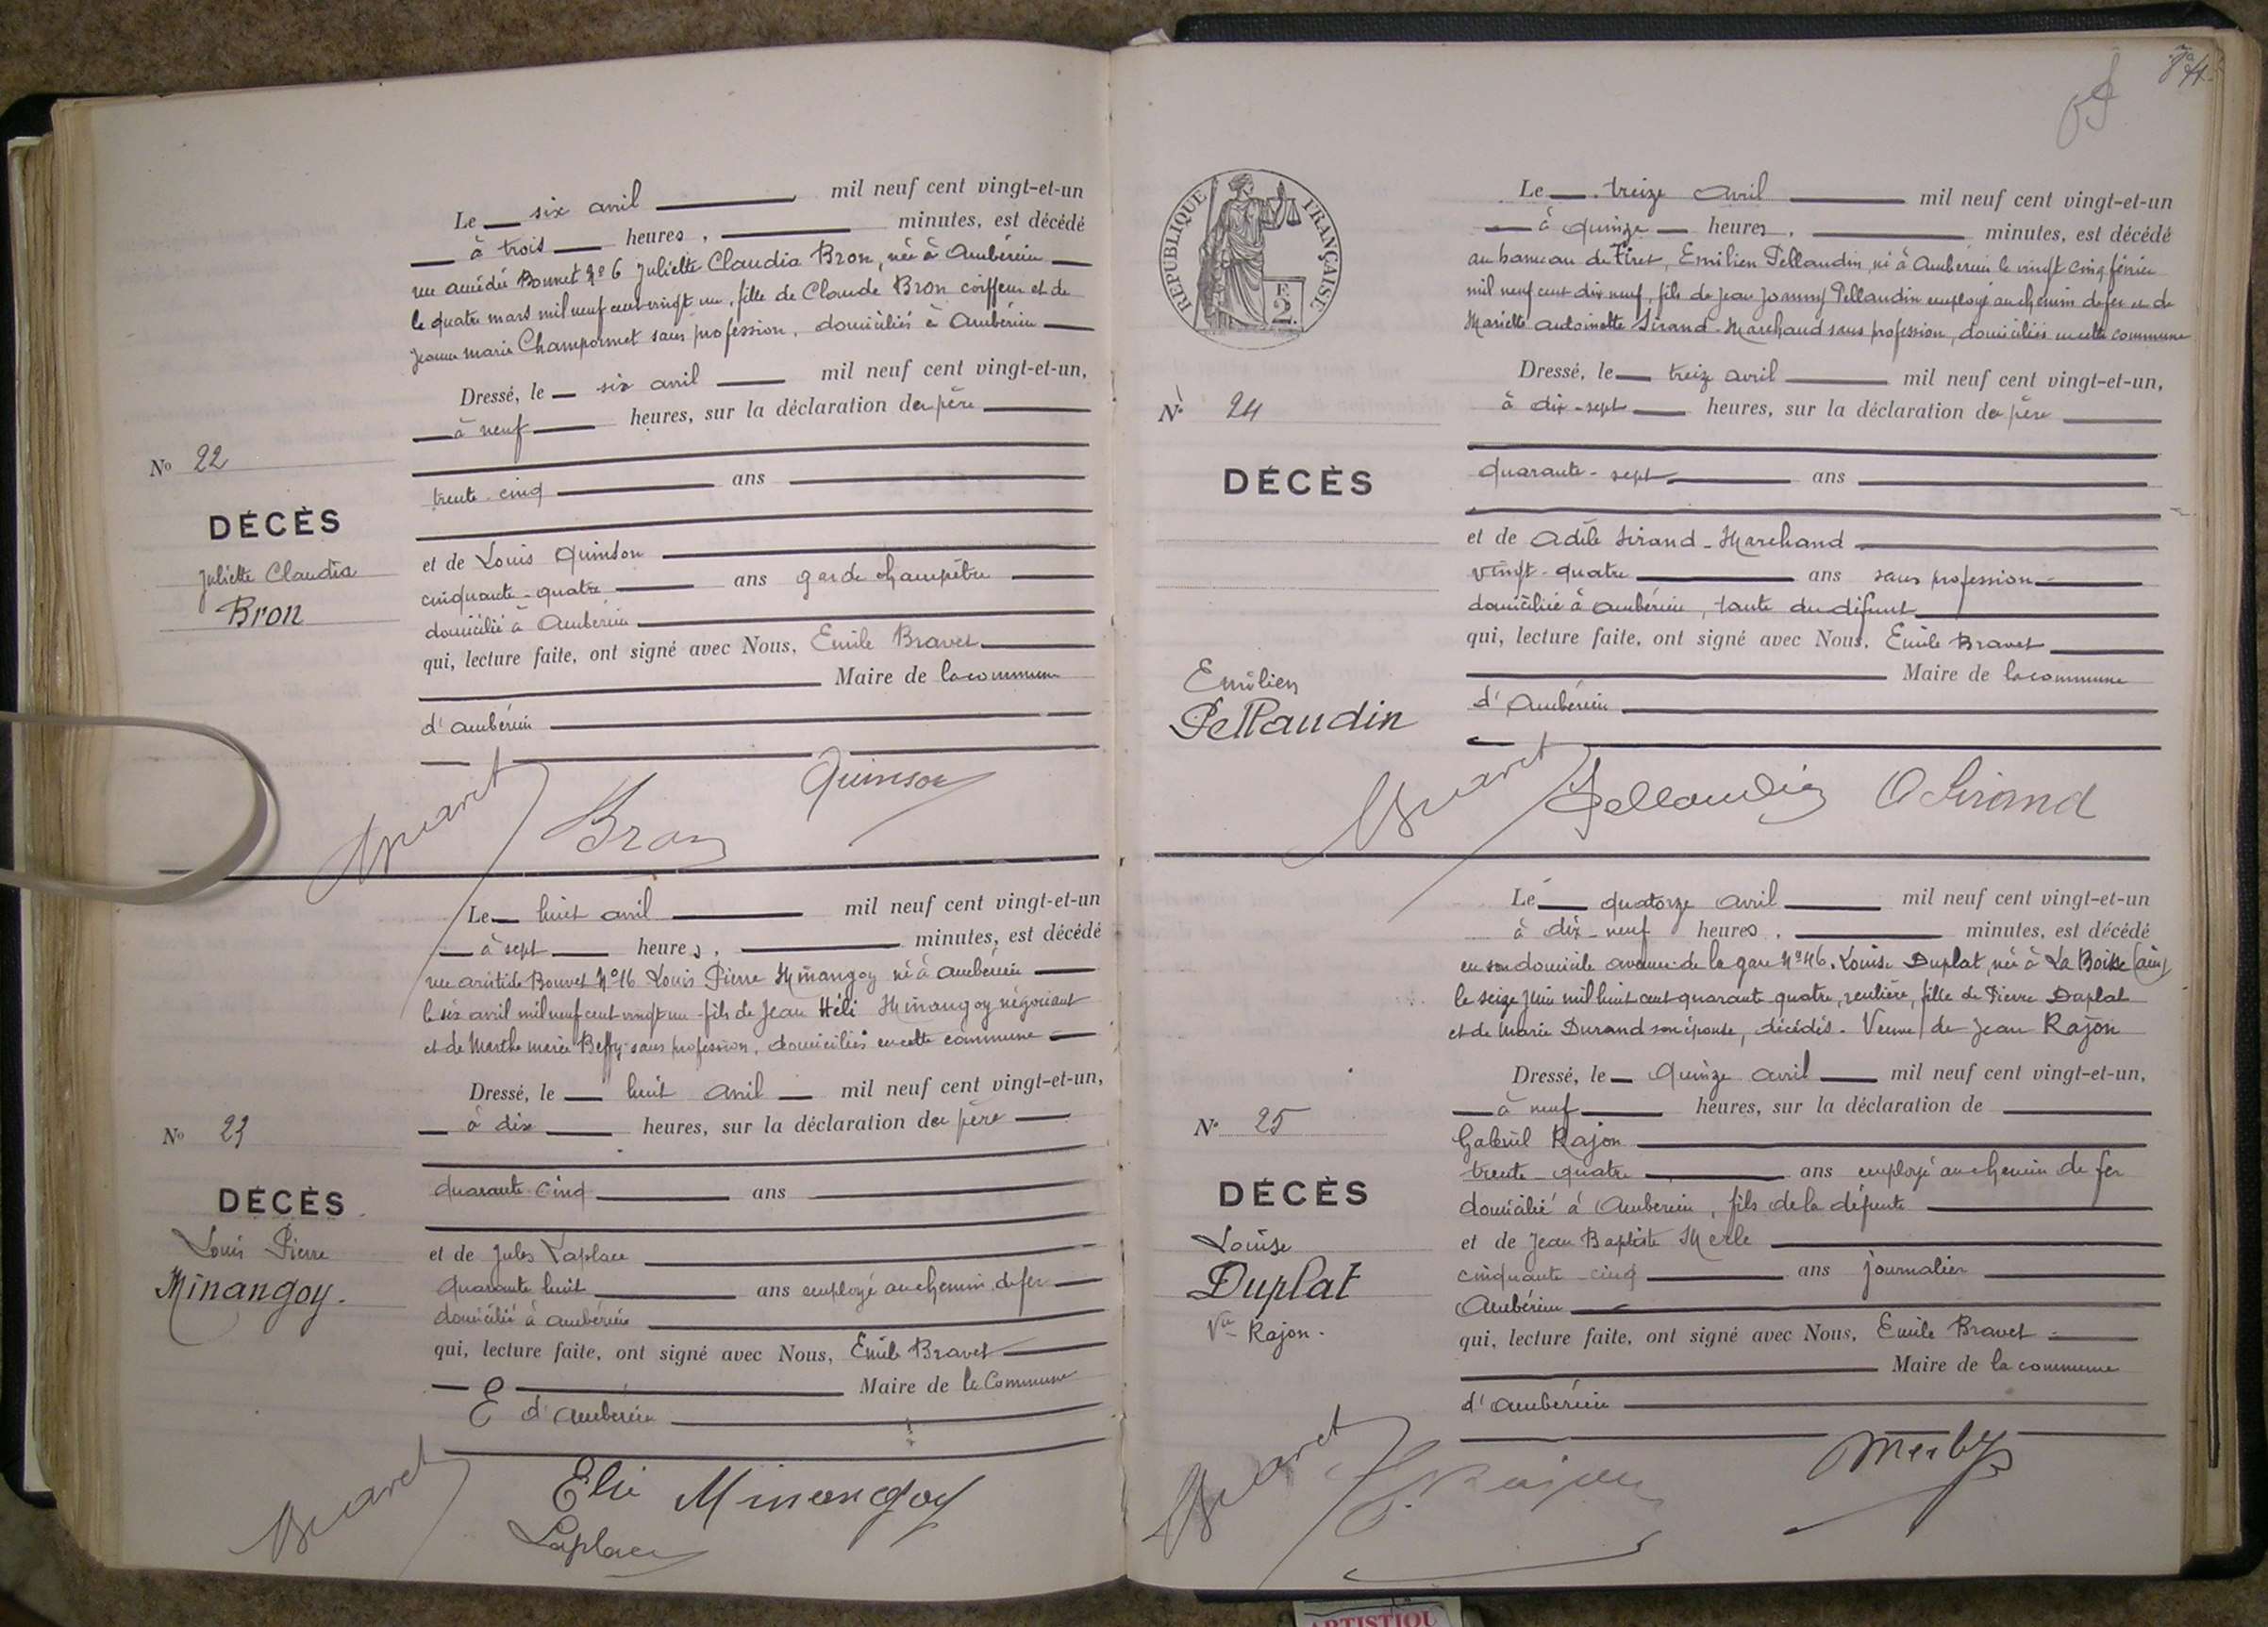 Le six avril mil neuf cent vingt-et-un
à trois heures, minutes, est décédé
rue amédée Bonnet Nº 6 Juliette Claudia Bron, née à Ambérieu
le quatre mars mil neuf cent vingt un, fille de Claude Bron coiffeur et de
Jeanne marie Champonnet sans profession, domiciliés à Ambérieu
Dressé, le six avril mil neuf cent vingt-et-un,
à neuf heures, sur la déclaration du père
Nº 22
trente-cinq ans
DÉCÈS
et de Louis Quinson
Juliette Claudia
cinquante-quatre ans garde champêtre
Bron
domicilié à Ambérieu
qui, lecture faite, ont signé avec Nous, Emile Bravet
Maire de la commune
d'Ambérieu
Bravet Bron Quinson
Le huit avril mil neuf cent vingt-et-un
à sept heures, minutes, est décédé
rue aristide Bouvet Nº 16 Louis Pierre Minangoy né à ambérieu
le six avril mil neuf cent vingt un fils de Jean Héli Minangoy négociant
et de Marthe marie Beffy sans profession, domiciliés en cette commune
Dressé, le huit avril mil neuf cent vingt-et-un,
à dix heures, sur la déclaration du père
Nº 23
quarante cinq ans
DÉCÈS
Louis Pierre
et de Jules Laplace
Minangoy.
quarante huit ans employé au chemin de fer
domicilié à ambérieu
qui, lecture faite, ont signé avec Nous, Emile Bravet
Maire de la Commune
d'ambérieu
Bravet Elie Minangoy
Laplace
RÉPUBLIQUE FRANÇAISE
F.
2.
Le treize avril mil neuf cent vingt-et-un
à quinze heures, minutes, est décédé
au hameau de Tiret, Emilien Pellaudin, né à Ambérieu le vingt cinq février
mil neuf cent dix neuf, fils de Jean Pellaudin employé au chemin de fer et de
Mariette antoinette Sirand-Marchand sans profession, domiciliés en cette commune
Dressé, le treize avril mil neuf cent vingt-et-un,
Nº 24
à dix-sept heures, sur la déclaration du père
DÉCÈS
quarante-sept ans
et de Adèle Sirand-Marchand
vingt-quatre ans sans profession
domiciliée à ambérieu, tante du défunt
qui, lecture faite, ont signé avec Nous, Emile Bravet
Emilien
Maire de la commune
Pellaudin
d'Ambérieu
Bravet Pellaudin A Sirand
Le quatorze avril mil neuf cent vingt-et-un
à dix-neuf heures, minutes, est décédé
en son domicile avenue de la gare Nº 46, Louise Duplat, née à La Boisse (ain)
le seize juin mil huit cent quarante quatre, rentière, fille de Pierre Duplat
et de Marie Durand son épouse, décédés. Veuve de Jean Rajon
Dressé, le quinze avril mil neuf cent vingt-et-un,
à neuf heures, sur la déclaration de
Nº 25
Gabriel Rajon
trente-quatre ans employé au chemin de fer
DÉCÈS
domicilié à Ambérieu, fils de la défunte
Louise
et de Jean Baptiste Merle
Duplat
cinquante-cinq ans journalier
Ambérieu
Vve Rajon.
qui, lecture faite, ont signé avec Nous, Emile Bravet
Maire de la commune
d'ambérieu
Bravet G. Rajon
ARTISTIQU